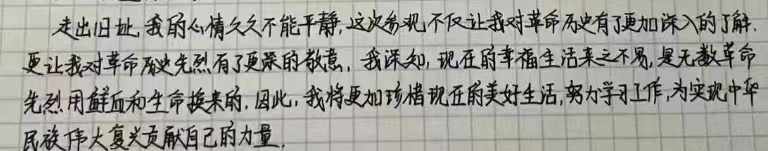 走出旧址,我的心情久久不能平静,这次参观不仅让我对革命历史有了更加深入的了解,
更让我对革命历史先烈有了更深的敬意,我深知,现在的幸福生活来之不易,是无数革命
先烈用鲜血和生命换来的,因此,我将更加珍惜现在的美好生活,努力学习工作,为实现中华
民族伟大复兴贡献自己的力量.